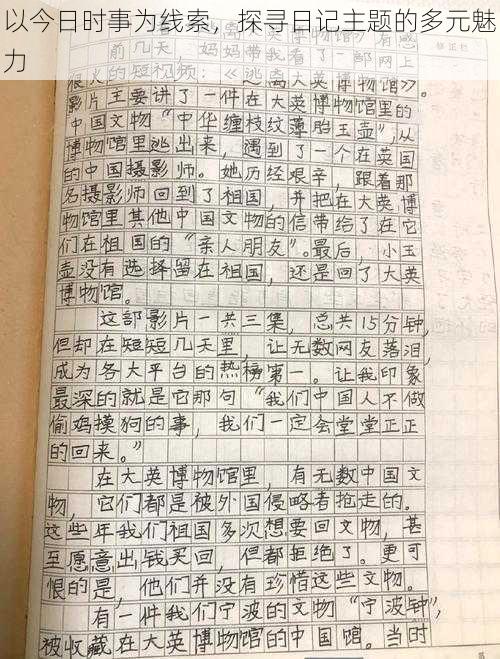 以今日时事为线索，探寻日记主题的多元魅
力
有感
前几天，妈妈带我看了一部网上
很火的短视频：《逃离大英博物馆》。
影片主要讲了一件在大英博物馆里的
中国文物“中华缠枝纹薄胎玉壶”，从
博物馆里逃出来，遇到了一个在英国
的中国摄影师。她历经艰辛，跟着那
名摄影师回到了祖国，并把在大英博
物馆里其他中国文物的信带给了在它
们在祖国的“亲人朋友”。最后，小玉
壶没有选择留在祖国，还是回了大英
博物馆。
这部影片一共三集，总共15分钟，
但却在短短几天里，让无数网友落泪，
成为各大平台的热榜第一。让我印象
最深的就是它那句“我们中国人不做
偷鸡摸狗的事，我们一定会堂堂正正
的回来。”
在大英博物馆里，有无数中国文
物，它们都是被外国侵略者抢走的。
这些年我们祖国多次想要回文物，甚
至愿意出钱买回，但都拒绝了。更可
恨的是，他们并没有珍惜这些文物。
有一件我们宁波的文物“宁波钟”，
被收藏在大英博物馆的中国馆。当时